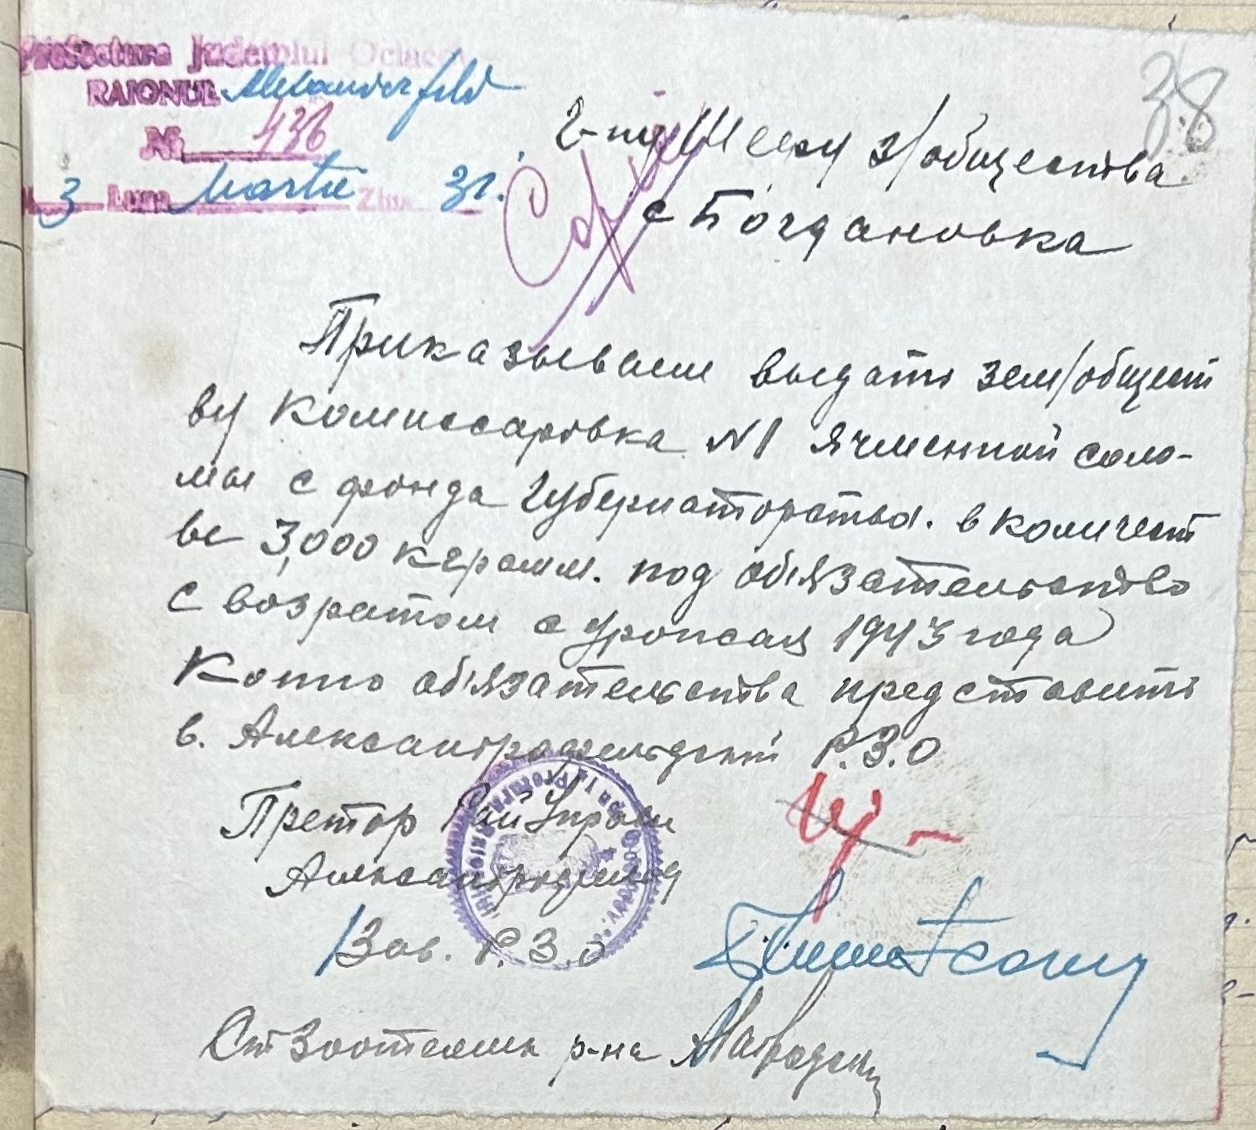 Prefectura Judetului Ociacov
RAIONUL Alexanderfeld
38
№ 436
3 Luna Martie Ziua 31.
г-ну Шефу з/общества
с Богдановка
Приказываем выдать зем/общест
ву Комиссаровка №1 ячменной соло-
мы с фонда Губернаторства. в количест
ве 3,000 кграмм. под обязательство
с возратом с урожая 1943 года
Копию обязательства представить
в. Александрфельдский Р.З.О
Претор Рай Управы
Александрфельд
Зав. Р.З.О
Ст Зоотехник р-на